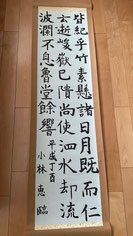 皆紀乎竹素懸諸日月既而仁
云逝峻嶽已隤尚使泗水却流
波瀾不息魯堂餘響
平成丁酉
小林恵臨